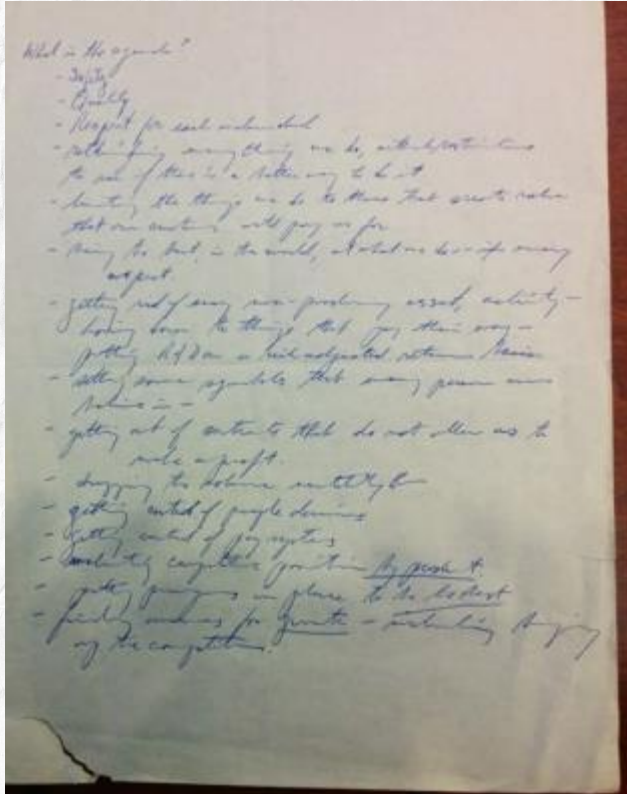 What is the agenda?
- Safety
- Quality
- Respect for each individual
- rethinking everything we do, without restrictions
to see if there is a better way to do it
- limiting the things we do to those that create value
that our customers will pay us for
- being the best, in the world, at what we do in every
aspect.
- getting rid of every non-producing asset, activity -
down to things that pay their way -
putting R&D on a risk adjusted return basis
- setting some that every person can
believe in -
- getting out of contracts that do not allow us to
make a profit.
- to
- getting control of people
- getting control of pay systems
- competitive position by product.
- putting in place to be the best
- finding avenues for growth - including buying
up the competition.